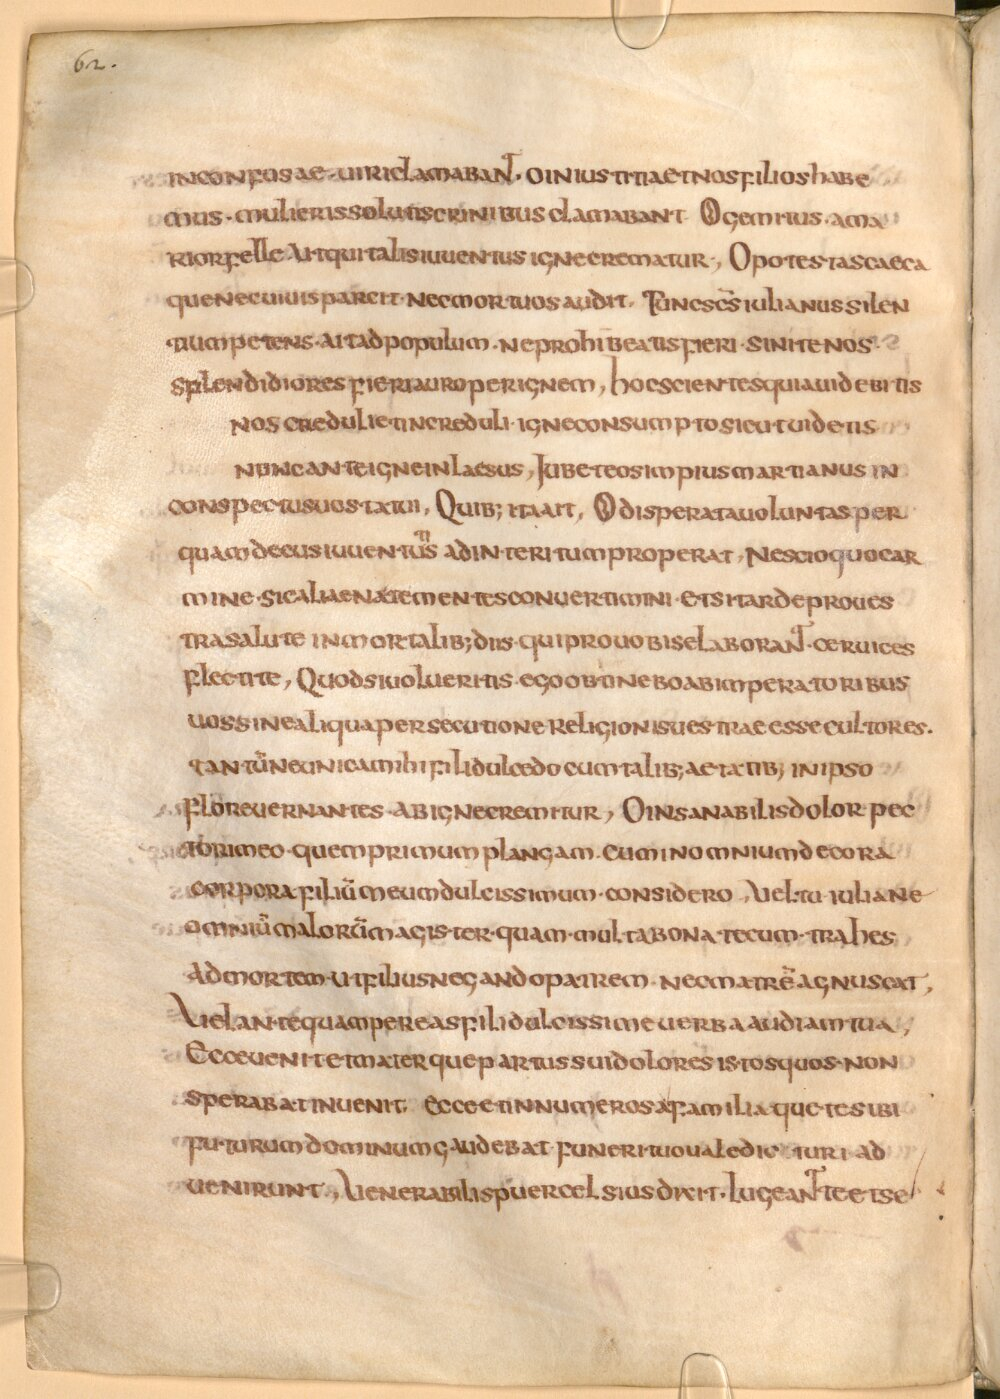 62.
inconfusae · uiri clamabanṫ · o iniustitia et nos filios habe
mus · mulieris solutis crinibus clamabant O gemitus · ama
rior felle ut qui talis iuuentus igne crematur, O potestas caeca
que nec uiuis parcit · nec mortuos audit. Tunc scs̄ iulianus silen
tium petens · ait ad populum · ne prohibeatis fieri · sinite nos
splendidiores fieri auro per ignem, hoc scientes quia uidebitis
nos creduli et increduli · igne consumpto sicut uidetis
nunc ante igne inlaesus, Iubet eos impius martianus in
conspectu suo statui, Quib; ita ait, O disperata uoluntas per
quam decus iuuentu̅s ad interitum properat, Nescio quo car
mine · sic alienate mentes conuertimini · et si tarde pro ues
tra salute inmortalib; diis · qui pro uobis elaboranṫ · ceruices
flectite, Quod si uolueritis · ego obtinebo ab imperatoribus
uos sine aliqua persecutione religionis uestrae esse cultores.
tantū ne unica mihi fili dulcedo cum talib; aetatib; in ipso
flore uernantes · ab igne cremitur, O insanabilis dolor pec
tori meo · quem primum plangam · cum in omnium decora
corpora filiū meum dulcissimum · considero, Uel tu · iuliane
omniū malorū magister · quam · multa bona tecum · trahes
ad mortem · ut filius negando patrem · nec matrē agnuscat,
Uel antequam pereas fili dulcissime uerba audiam tua,
Ecce uenit et mater que partus sui dolores istos quos · non
sperabat inuenit. Ecce et innumerosa familia · que te sibi
futurum dominum gaudebat funeri tuo ualedic turi · ad
uenirunt, Uenerabilis puer celsius dixit · lugeanṫ te et se